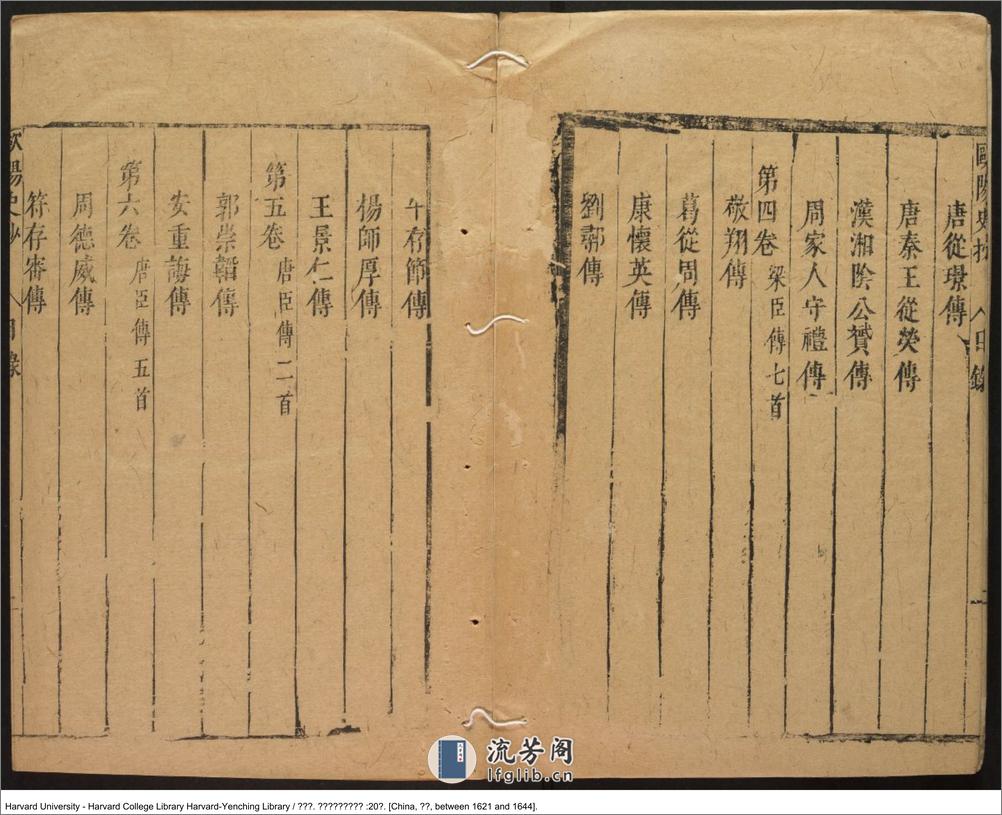 歐陽史抄 目錄
唐從璟傳
唐秦王從榮傳
漢湘陰公贇傳
周家人守禮傳
第四卷 梁臣傳七首
敬翔傳
葛從周傳
康懷英傳
劉鄩傳
牛存節傳
楊師厚傳
王景仁傳
第五卷 唐臣傳二首
郭崇韜傳
安重誨傳
第六卷 唐臣傳五首
周德威傳
符存審傳
歐陽史抄 目錄
流芳阁
lfglib.cn
Harvard University - Harvard College Library Harvard-Yenching Library / ???. ????????? :20?. [China, ??, between 1621 and 1644].